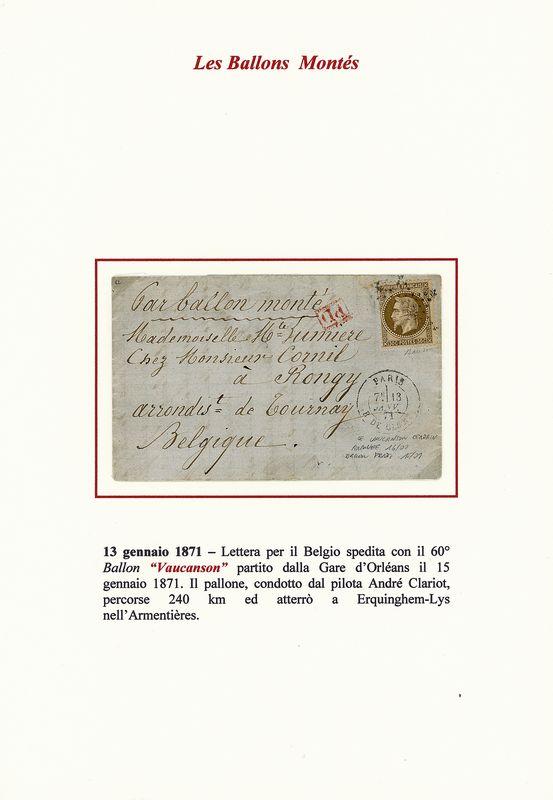 Les Ballons Montés
Par ballon monté
PD
Mademoiselle Mte Lumiere
Chez Monsieur Cornil
à Rongy
arrondist de Tournay
Belgique.
30C POSTES 30C
PARIS
7E 13
JANV.
71
LE VAUCANSON CERTAIN
13 gennaio 1871 – Lettera per il Belgio spedita con il 60°
Ballon “Vaucanson” partito dalla Gare d’Orléans il 15
gennaio 1871. Il pallone, condotto dal pilota André Clariot,
percorse 240 km ed atterrò a Erquinghem-Lys
nell’Armentières.